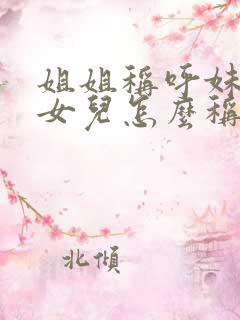 姐姐稱呼妹
女兒怎麼稱
北傾